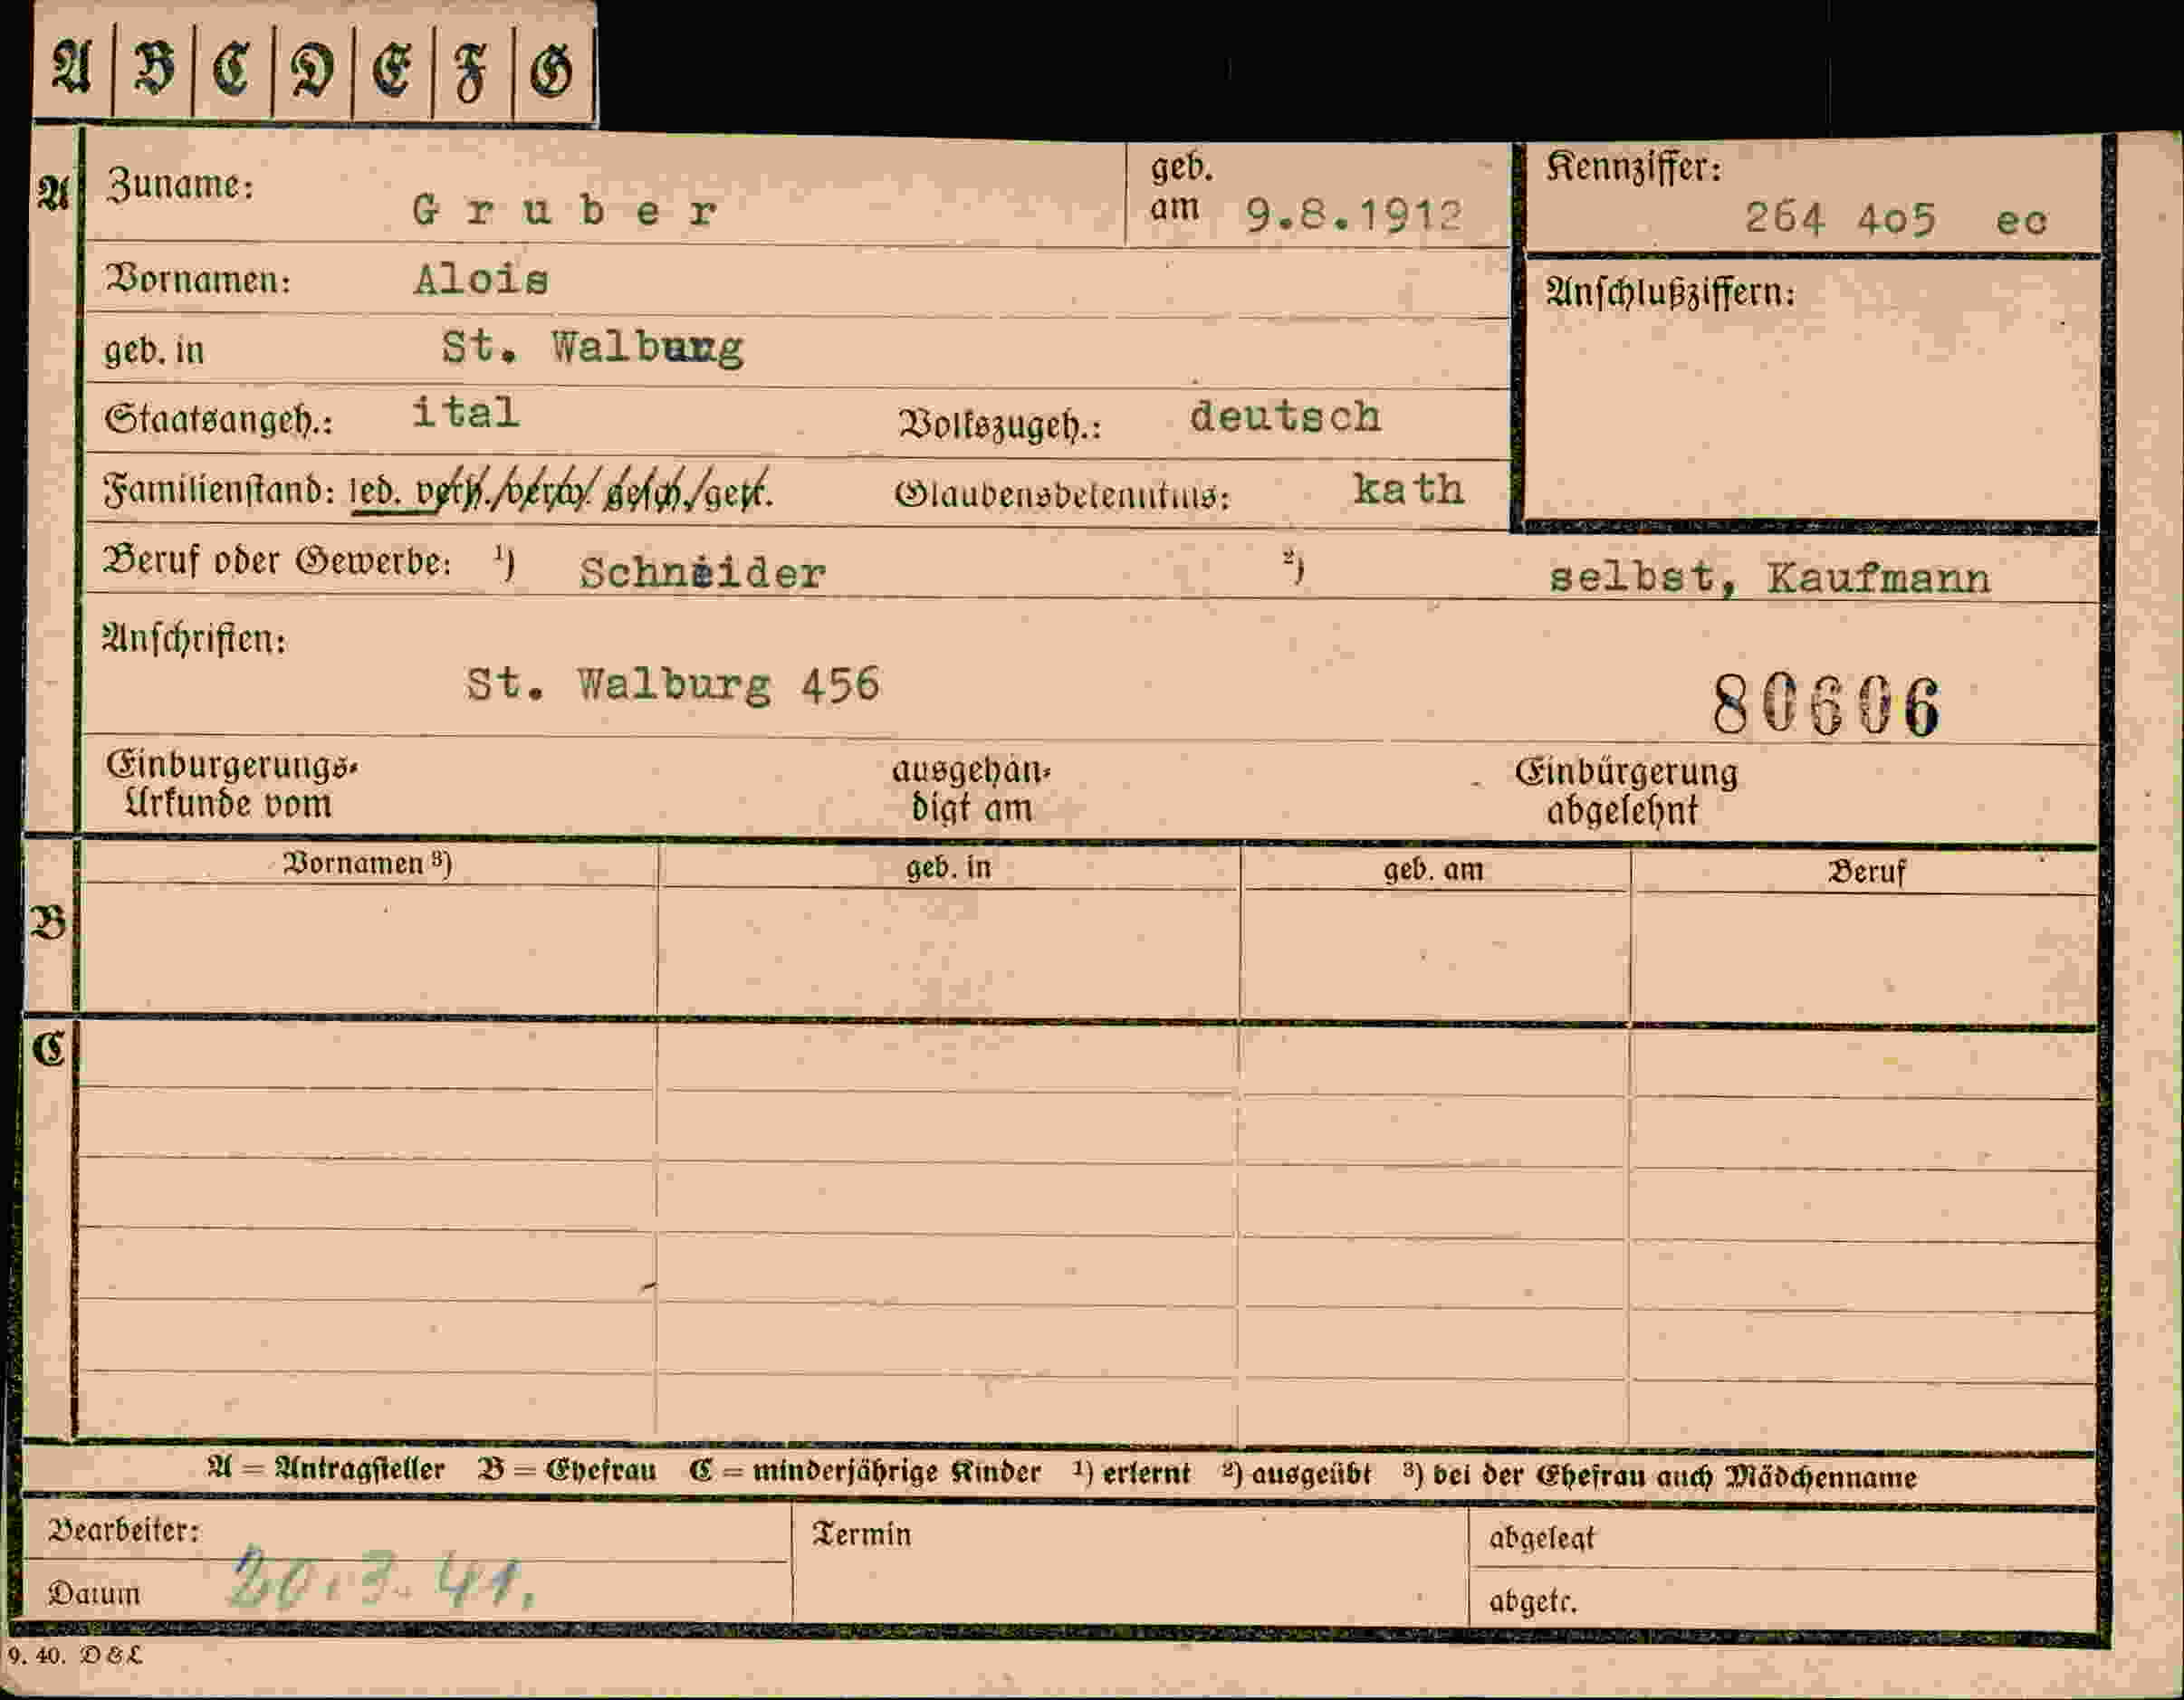 A B C D E F G
A Zuname: Gruber geb. am 9.8.1912 Kennziffer: 264 4o5 eo
Vornamen: Alois Anschlußziffern:
geb. in St. Walburg
Staatsangeh.: ital Volkszugeh.: deutsch
Familienstand: led. verh./verw./gesch./getr. Glaubensbekenntnis: kath
Beruf oder Gewerbe: ¹) Schneider ²) selbst, Kaufmann
Anschriften:
St. Walburg 456 80606
Einbürgerungs- ausgehän- Einbürgerung
Urkunde vom digt am abgelehnt
Vornamen ³) geb. in geb. am Beruf
B
C
A = Antragsteller B = Ehefrau C = minderjährige Kinder ¹) erlernt ²) ausgeübt ³) bei der Ehefrau auch Mädchenname
Bearbeiter: Termin abgelegt
Datum 20.3.41. abgetr.
9. 40. D & L